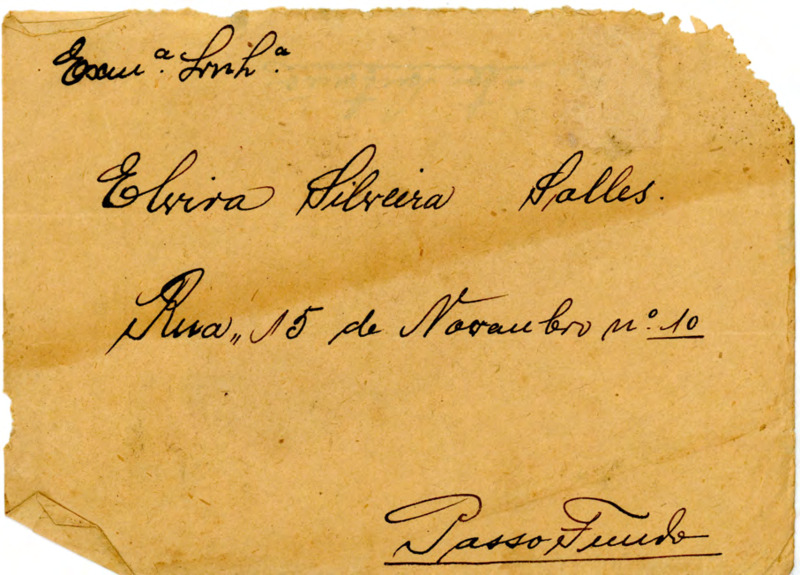 Exmª. Srnhª.
Elvira Silveira Salles.
Rua „ 15 de Novembro nº. 10
Passo Fundo